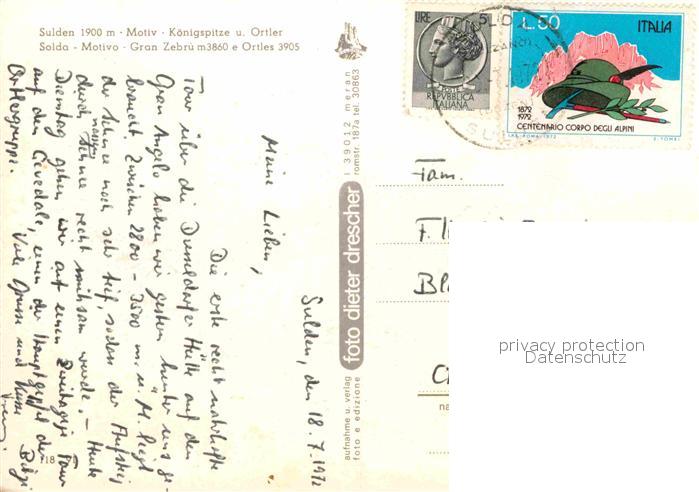 Sulden 1900 m · Motiv · Königspitze u. Ortler
Solda - Motivo - Gran Zebrù m 3860 e Ortles 3905
Sulden, den 18.7.1972
Meine Lieben,
Die erste recht nahrhafte
Tour über die Düsseldorfer Hütte auf den
Gran Angelo haben wir gestern hinter uns ge-
bracht. Zwischen 2800 - 3500 m. ü. M. liegt
der Schnee noch sehr tief, sodass der Aufstieg
durch nassen Schnee recht mühsam wurde. - Heute
Dienstag gehen wir auf einen Zweitagige Tour
auf den Cevedale, einen der Hauptgipfel der
Ortlergruppe.
Viele Grüsse und Küsse
aufnahme u. verlag
foto e edizione
foto dieter drescher
I 39012 meran
romstr. 187a tel. 30863
LIRE 5
POSTE
REPVBBLICA
ITALIANA
L. 50 ITALIA
1872
1972
CENTENARIO CORPO DEGLI ALPINI
I.P.S. ROMA 1972
E. TOMEI
Fam.
F.
privacy protection
Datenschutz